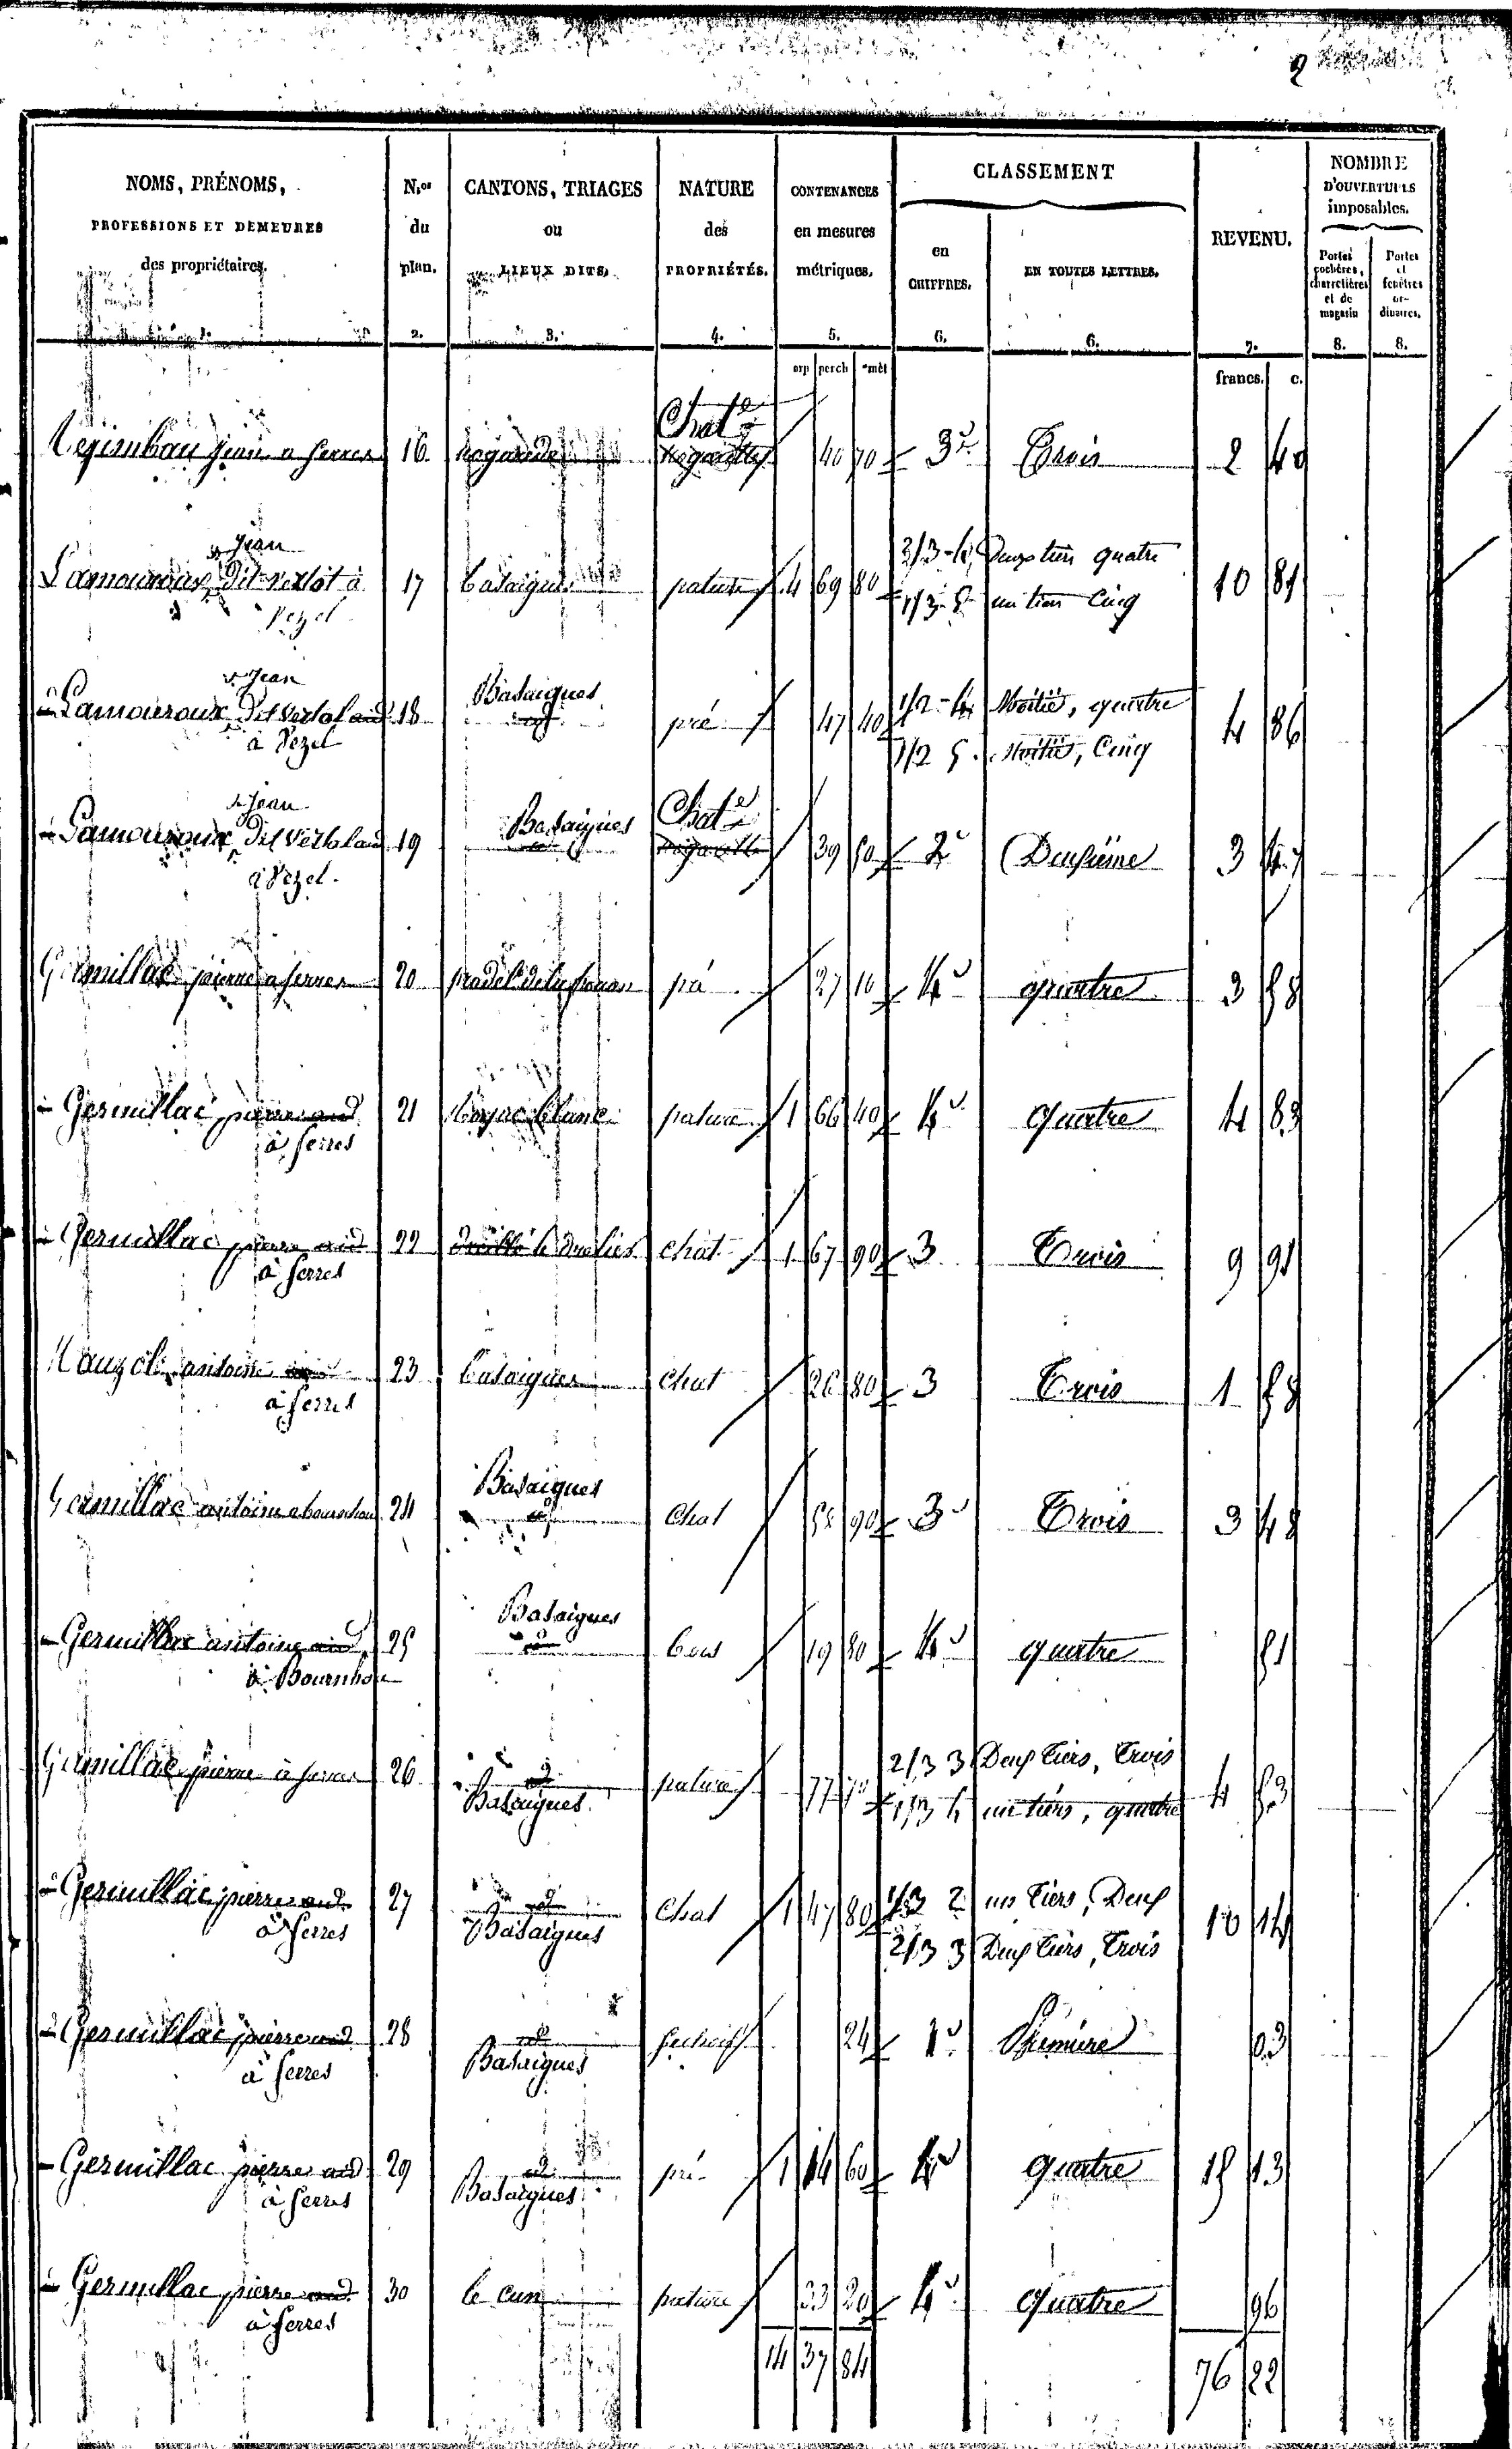 2
NOMS, PRÉNOMS,
PROFESSIONS ET DEMEURES
des propriétaires.
1.
N.os
du
plan.
2.
CANTONS, TRIAGES
ou
LIEUX DITS.
3.
NATURE
des
PROPRIÉTÉS.
4.
CONTENANCES
en mesures
métriques.
5.
CLASSEMENT
en
CHIFFRES.
6.
EN TOUTES LETTRES.
6.
REVENU.
7.
NOMBRE
D'OUVERTURES
imposables.
Portes
cochères,
charretières
et de
magasin
8.
Portes
et
fenêtres
or-
dinaires.
8.
arp perch mèt
francs. c.
Chat.e
jean a serres 16 40 70 3e Trois 2 40
jean
Lamouroux dit 17 Basaigues pature 4 69 80 2/3-4 Deux tiers quatre 10 81
Vezel 1/3-5 un tiers Cinq
Jean
Lamouroux dit 18 Basaigues pré 47 40 1/2-4 Moitié, quatre 4 86
à Vezel 1/2 5 Moitié, Cinq
Jean
Lamouroux dit 19 Basaigues Chat.e 39 50 2e Deuxième 3 47
à Vezel
Germillac pierre a serres 20 pré 27 10 4e quatre 3 58
Germillac pierre 21 pature 1 66 40 4e quatre 4 83
à serres
Germillac pierre 22 chat 1 67 90 3 Trois 9 91
à serres
antoine 23 Basaigues chat 26 80 3 Trois 1 58
à serres
Germillac antoine a 24 Basaigues chat 58 90 3e Trois 3 48
Germillac antoine 25 Basaigues bois 19 80 4e quatre 51
à Bournhou
Germillac pierre à serres 26 Basaigues pature 77 70 2/3 3 Deux tiers, Trois 4 53
1/3 4 un tiers, quatre
Germillac pierre 27 Basaigues Chat 1 47 80 1/3 2 un tiers, Deux 10 14
à serres 2/3 3 Deux tiers, Trois
Germillac pierre 28 Basaigues 24 1e Première 03
à serres
Germillac pierre 29 Basaigues pré 1 14 60 4e quatre 15 13
à serres
Germillac pierre 30 le cun pature 33 20 4e quatre 96
à serres
14 37 84 76 22